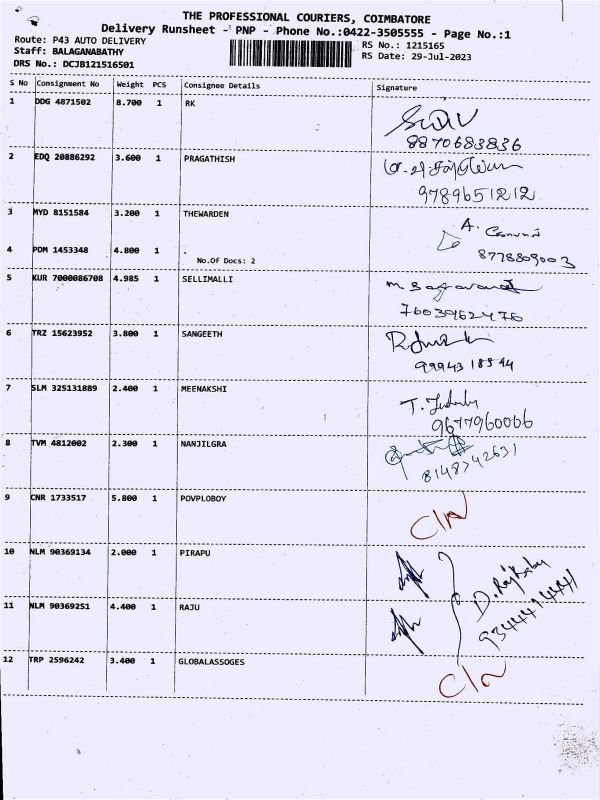 THE PROFESSIONAL COURIERS, COIMBATORE
Delivery Runsheet - PNP - Phone No.:0422-3505555 - Page No.:1
Route: P43 AUTO DELIVERY
RS No.: 1215165
Staff: BALAGANABATHY
RS Date: 29-Jul-2023
DRS No.: DCJB121516501
S No Consignment No Weight PCS Consignee Details Signature
1 DDG 4871502 8.700 1 RK
8870683836
2 EDQ 20886292 3.600 1 PRAGATHISH
9789651212
3 MYD 8151584 3.200 1 THEWARDEN
4 PDM 1453348 4.800 1
No.Of Docs: 2
8778809003
5 KUR 7000086708 4.985 1 SELLIMALLI
7603962476
6 TRZ 15623952 3.800 1 SANGEETH
9994318544
7 SLM 325131889 2.400 1 MEENAKSHI
9677960066
8 TVM 4812002 2.300 1 NANJILGRA
8148742631
9 CNR 1733517 5.800 1 POVPLOBOY
C/N
10 NLM 90369134 2.000 1 PIRAPU
D. Raj Babu
9344414441
11 NLM 90369251 4.400 1 RAJU
12 TRP 2596242 3.400 1 GLOBALASSOGES
C/N